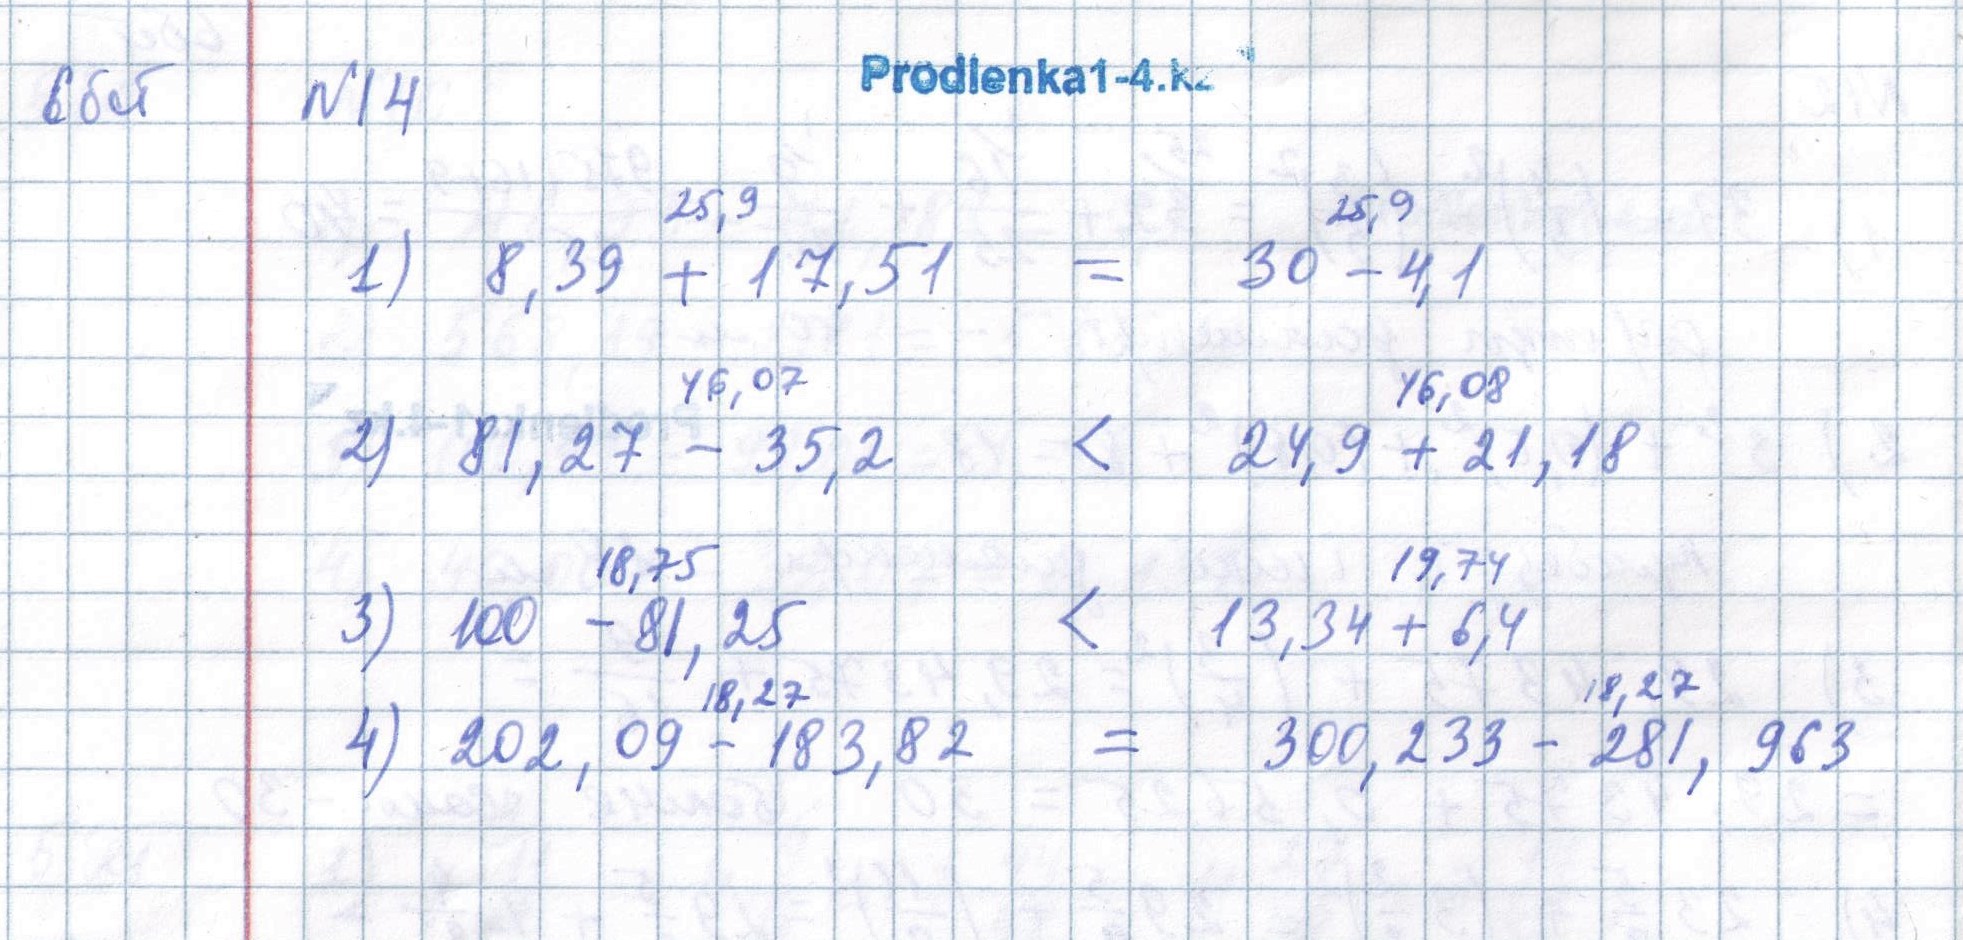 Prodlenka1-4.kz
№14
25,9 25,9
1) 8,39 + 17,51 = 30 - 4,1
46,07 46,08
2) 81,27 - 35,2 < 24,9 + 21,18
18,75 19,74
3) 100 - 81,25 < 13,34 + 6,4
18,27 18,27
4) 202,09 - 183,82 = 300,233 - 281,963